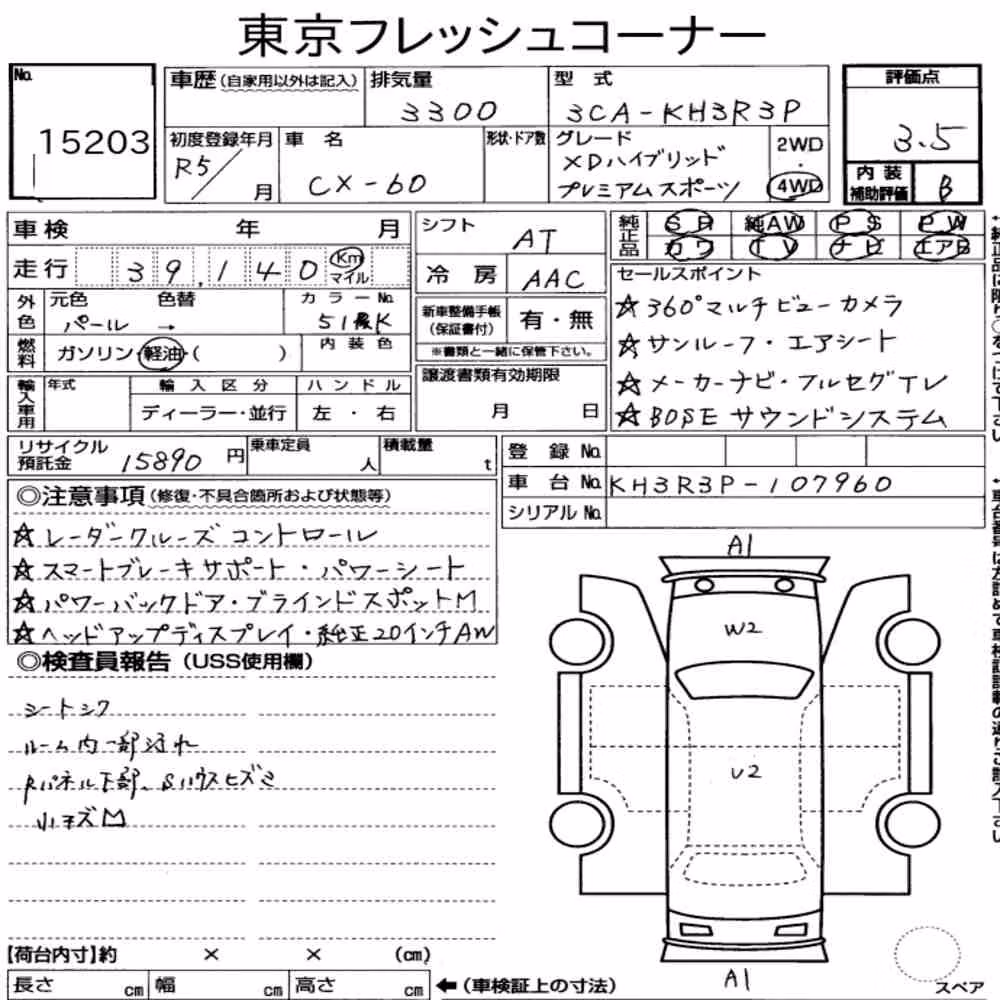 東京フレッシュコーナー
No.
15203
車歴(自家用以外は記入)
排気量
3300
型 式
3CA-KH3R3P
評価点
3.5
初度登録年月
R5/
月
車 名
CX-60
形状・ドア数
グレード
XDハイブリッド
プレミアムスポーツ
2WD
・
4WD
内 装
補助評価
B
車 検 年 月
走 行
39,140
Km
マイル
シフト
AT
冷 房
AAC
純正品
SR 純AW PS PW
カワ TV ナビ エアB
セールスポイント
☆360°マルチビューカメラ
☆サンルーフ・エアシート
☆メーカーナビ・フルセグTV
☆BOSE サウンドシステム
外色
元色 色替
パール →
カラーNo.
51K
内 装 色
燃料
ガソリン・軽油・( )
新車整備手帳
(保証書付)
有・無
※書類と一緒に保管下さい。
輸入車用
年式
輸 入 区 分
ディーラー・並行
ハ ン ド ル
左 ・ 右
譲渡書類有効期限
月 日
リサイクル
預託金
15890 円
乗車定員
人
積載量
t
登 録 No.
車 台 No.
KH3R3P-107960
シリアル No.
◎注意事項(修復・不具合箇所および状態等)
☆レーダークルーズ コントロール
☆スマートブレーキサポート・パワーシート
☆パワーバックドア・ブラインドスポットM
☆ヘッドアップディスプレイ・純正20インチAW
◎検査員報告(USS使用欄)
シートシワ
ルーム内一部汚れ
Rパネル下部、Sハウスヒズミ
小キズM
A1
W2
U2
A1
【荷台内寸】約 × × (cm)
長さ cm
幅 cm
高さ cm
←(車検証上の寸法)
スペア